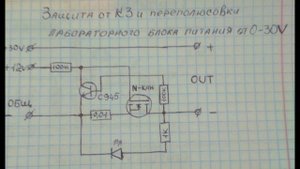 Защита от КЗ и переполюсовки
лабораторного блока питания от 0-30V
+30V
+
+12V
100к
OUT
C945
N-кан
100к
ОБЩ
0,01
-
1К